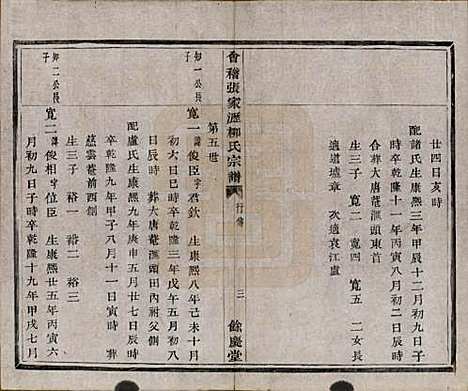 廿四日亥時
配諸氏生康熙三年甲辰十二月初九日子時
卒乾隆十一年丙寅八月初二日辰時
合葬大唐菴滙頭東首
生三子 寬二 寬四 寬五 二女長
適道墟章 次適袁江盧
會稽張家瀝柳氏宗譜
行傳
三
餘慶堂
第五世
知一公長子
寬一 諱俊臣字君欽 生康熙八年己未十月
初六日巳時卒乾隆三年戊午五月初八
日辰時 葬大唐菴滙頭田內祔父側
配盧氏生康熙九年庚申五月廿七日辰時
卒乾隆九年甲子八月十一日寅時 葬
慈雲菴前西側
生三子 裕一 裕二 裕三
知二公長子
寬二 諱俊相字位臣 生康熙廿五年丙寅六
月初九日子時卒乾隆十九年甲戌七月